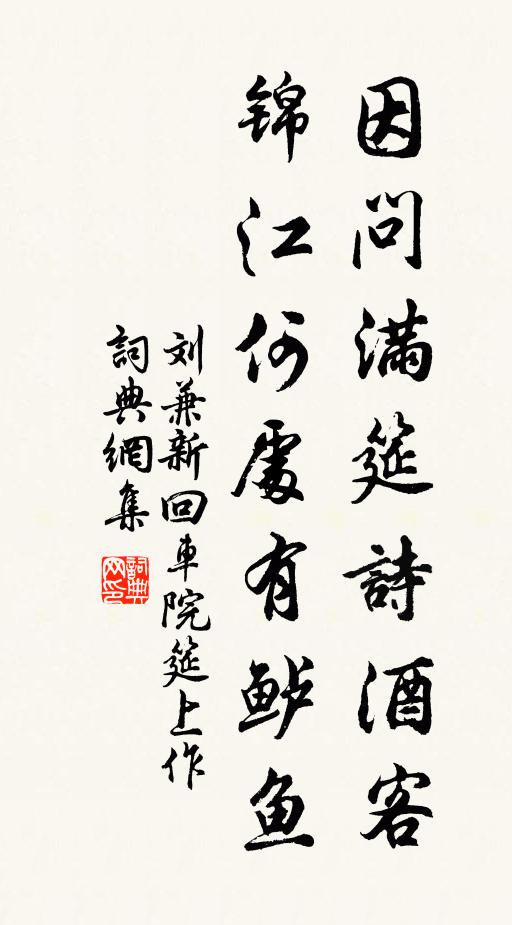 因问满筵詩酒客
锦江何處有鲈鱼
刘兼新回車院筵上作
詞典網集
詞典
网印